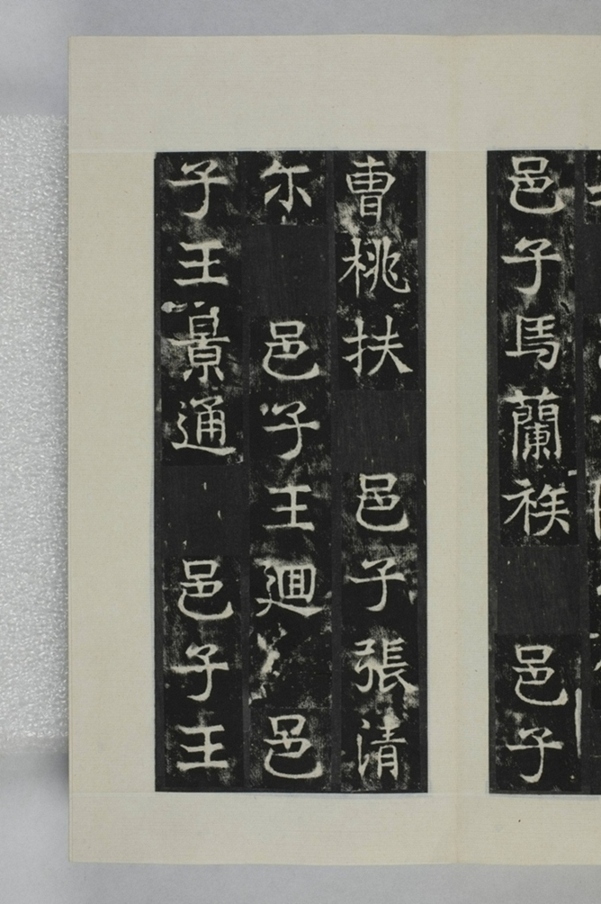 邑子馬蘭 邑子
曹桃扶 邑子張清
尒 邑子王迴 邑
子王景通 邑子王